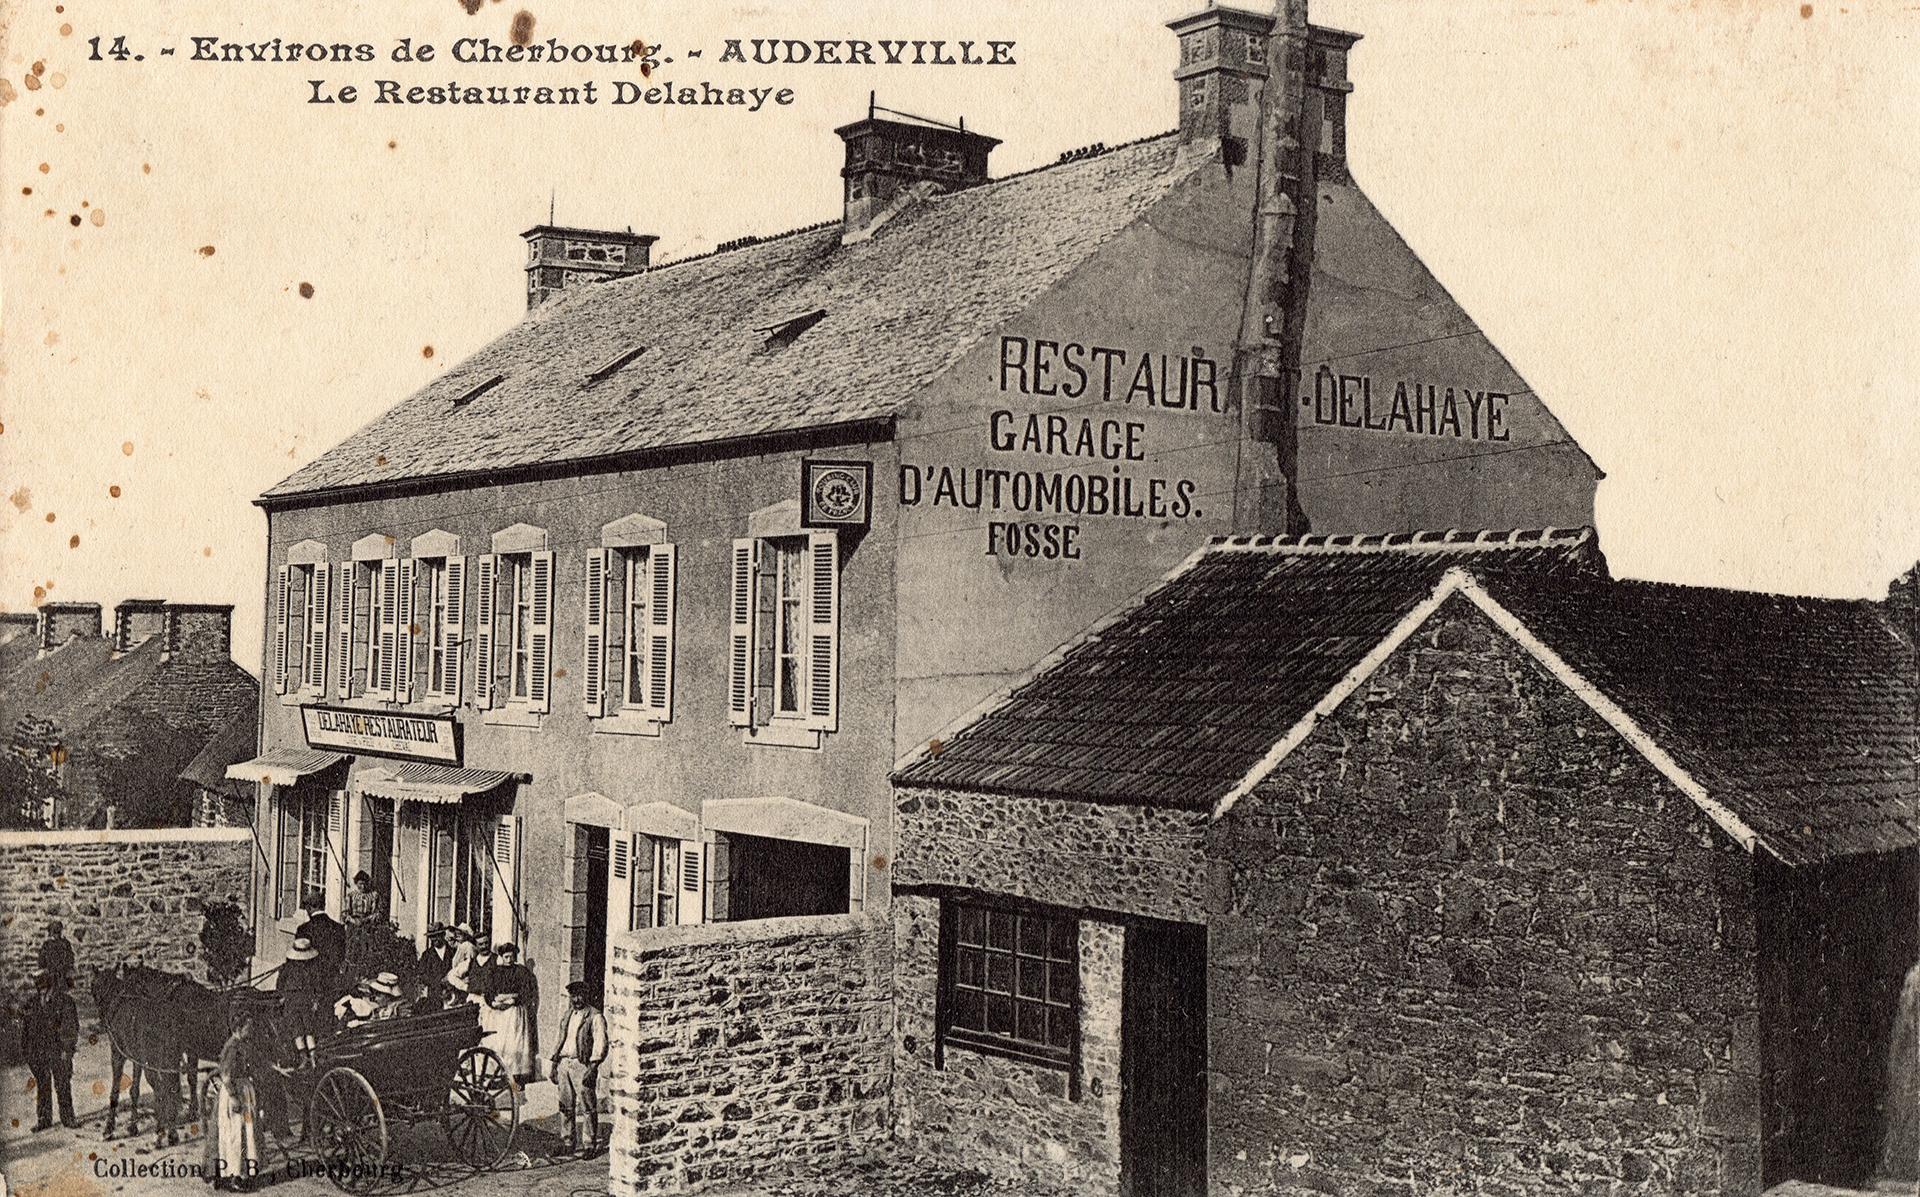 14. - Environs de Cherbourg. - AUDERVILLE
Le Restaurant Delahaye
RESTAURT - DELAHAYE
GARAGE
D'AUTOMOBILES.
FOSSE
DELAHAYE RESTAURATEUR
Collection P. B., Cherbourg